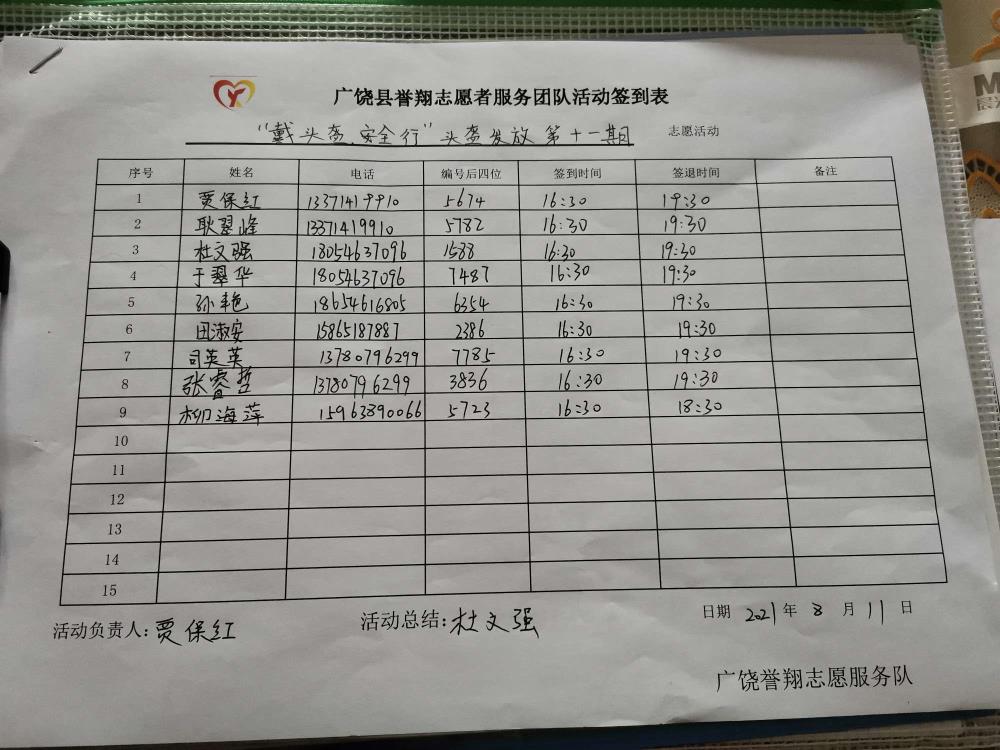 广饶县誉翔志愿者服务团队活动签到表
“戴头盔、安全行”头盔发放第十一期 志愿活动
序号 姓名 电话 编号后四位 签到时间 签退时间 备注
1 贾保红 13371419910 5674 16:30 19:30
2 耿翠峰 13371419910 5782 16:30 19:30
3 杜文强 18054637096 1588 16:30 19:30
4 于翠华 18054637096 7487 16:30 19:30
5 孙艳 18654616805 6354 16:30 19:30
6 田淑安 15865187887 2386 16:30 19:30
7 司英英 13780796299 7785 16:30 19:30
8 张睿哲 13780796299 3836 16:30 19:30
9 柳海萍 15963890066 5723 16:30 18:30
10
11
12
13
14
15
活动负责人:贾保红 活动总结:杜文强 日期 2021年 8 月 11 日
广饶誉翔志愿服务队